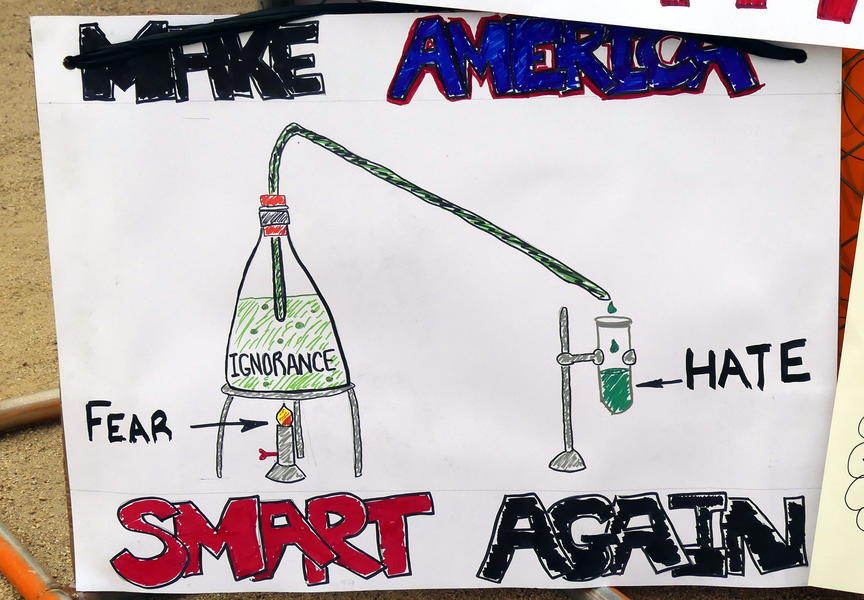 MAKE AMERICA
IGNORANCE
HATE
FEAR
SMART AGAIN